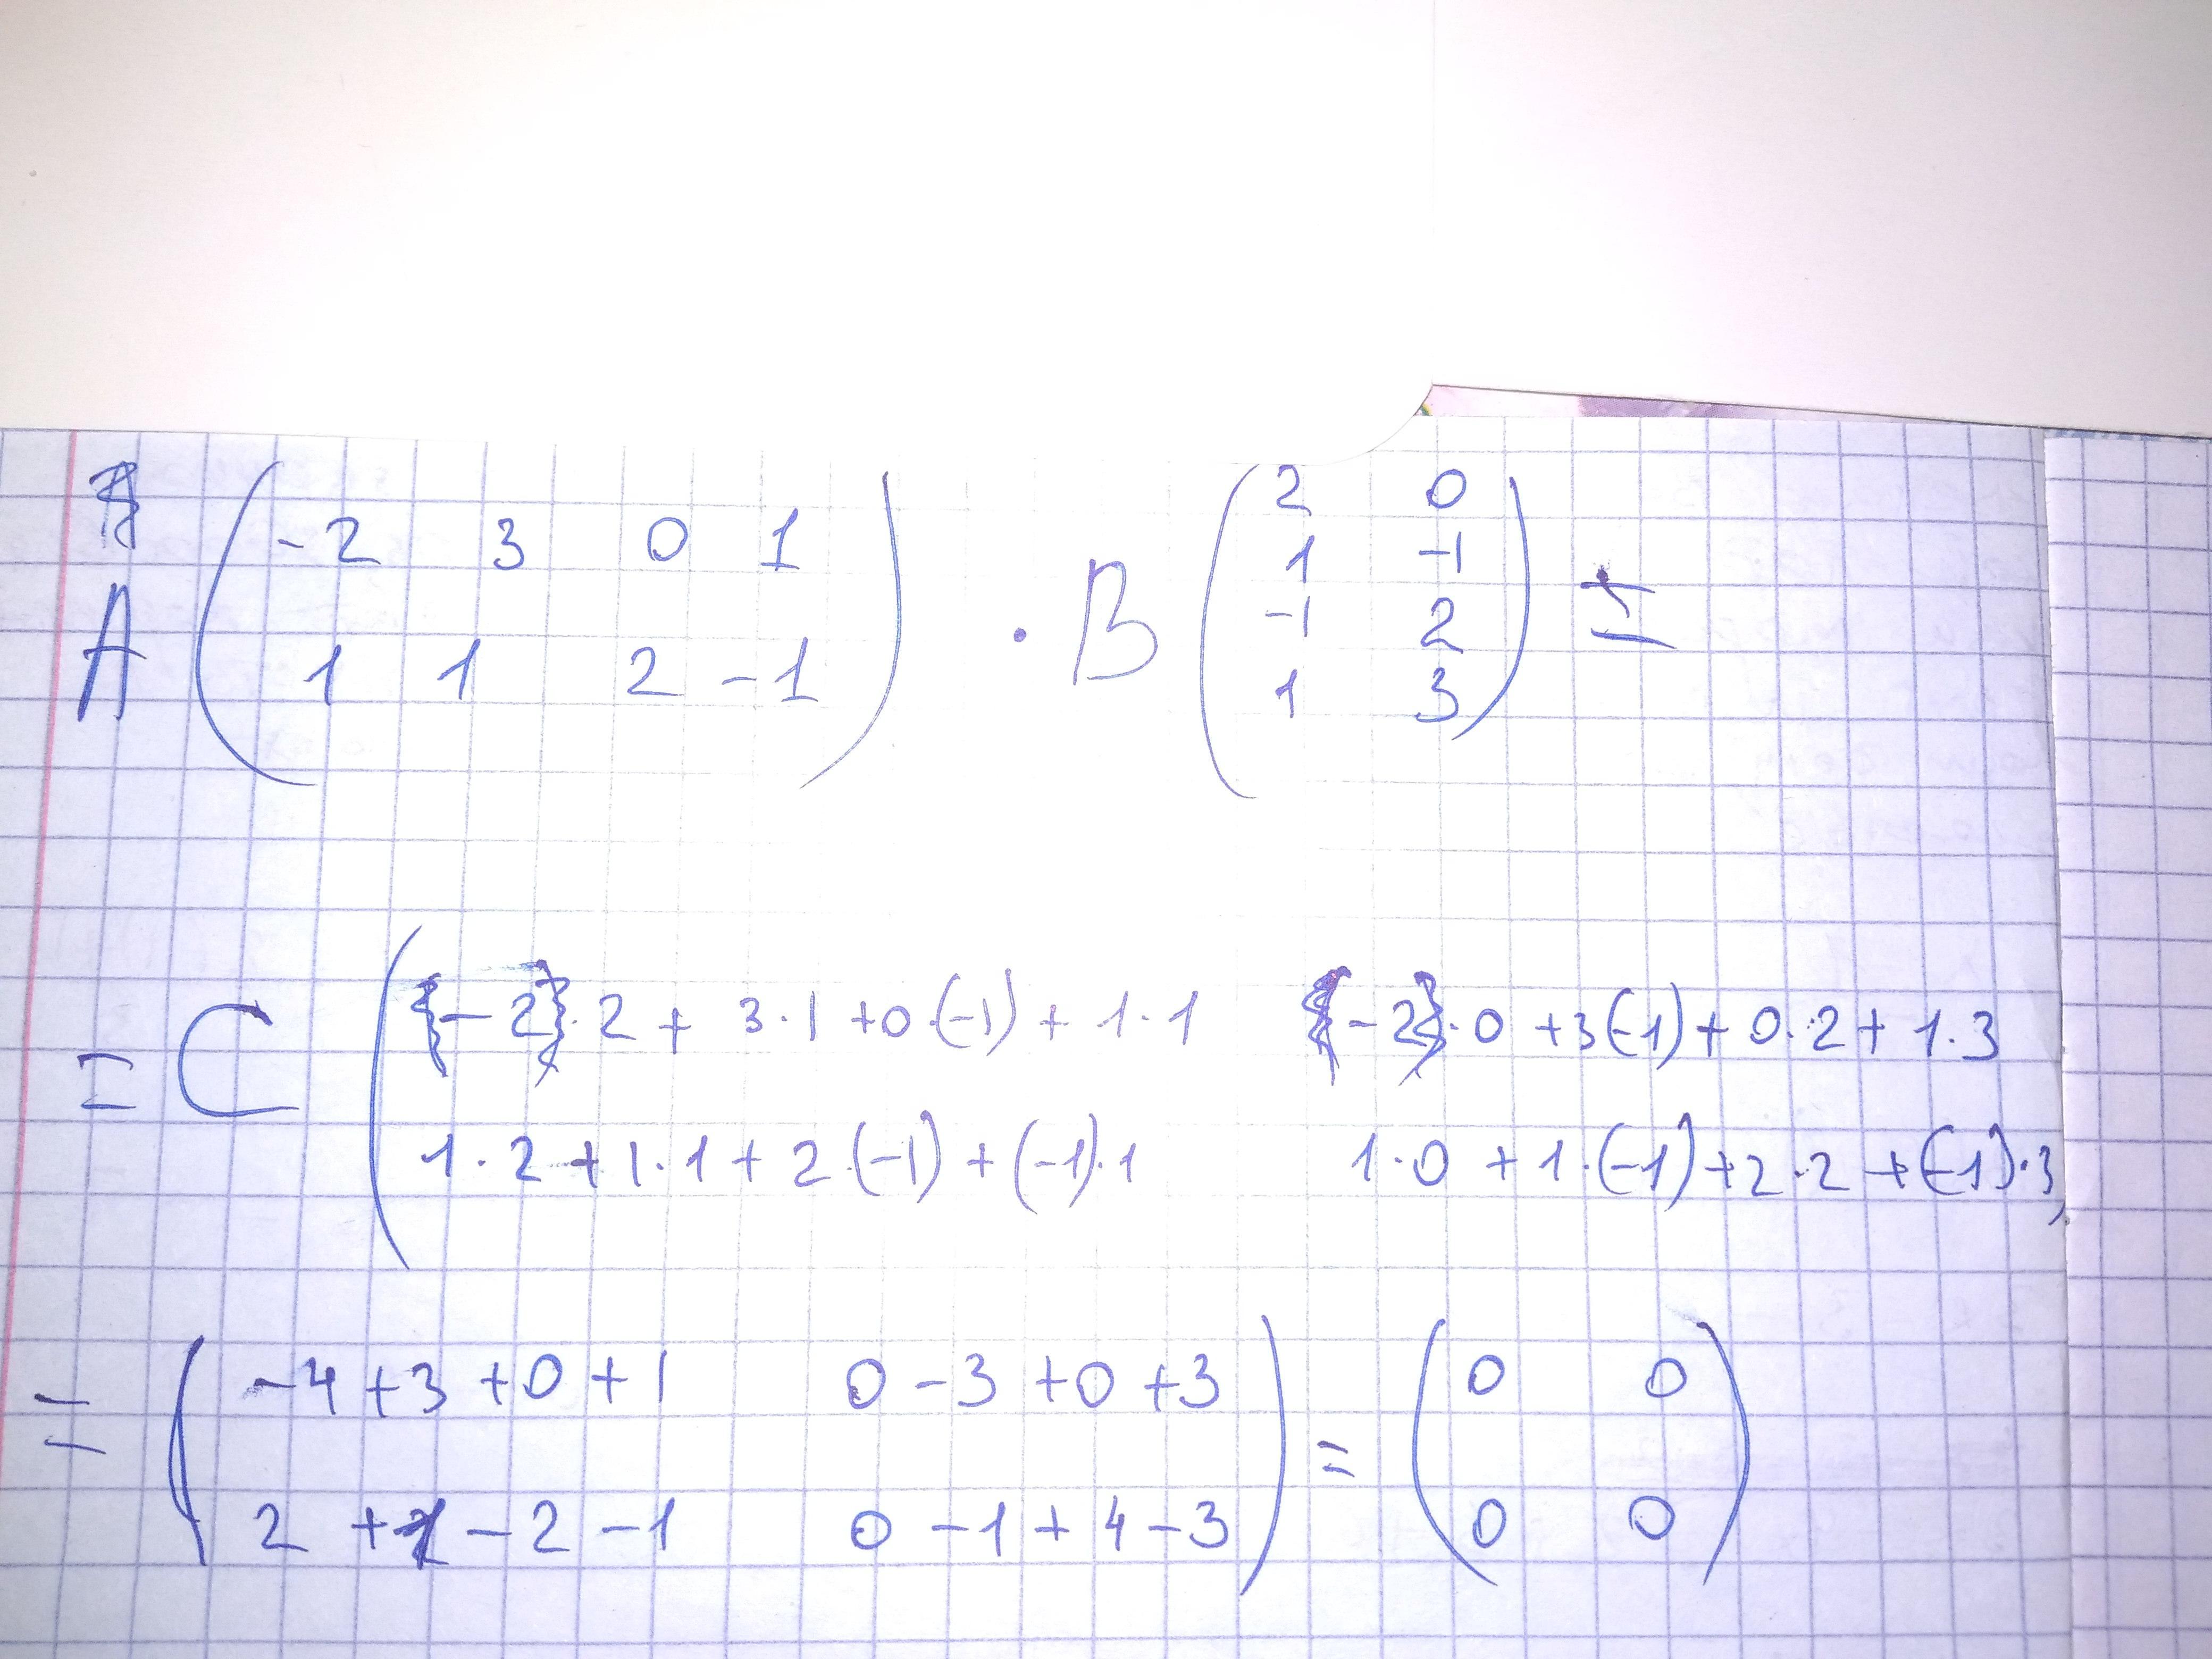 A ( -2 3 0 1 ) · B ( 2 0 ) =
1 1 2 -1
1 -1
-1 2
1 3
= C ( -2 · 2 + 3 · 1 + 0 · (-1) + 1 · 1 -2 · 0 + 3(-1) + 0 · 2 + 1 · 3
1 · 2 + 1 · 1 + 2 · (-1) + (-1) · 1 1 · 0 + 1 · (-1) + 2 · 2 + (-1) · 3
= ( -4 + 3 + 0 + 1 0 - 3 + 0 + 3 ) = ( 0 0 )
2 + 1 - 2 - 1 0 - 1 + 4 - 3 0 0